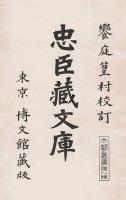 饗庭篁村校訂
忠臣藏文庫
東京 博文館藏版